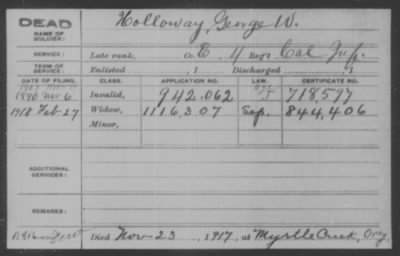 DEAD
NAME OF SOLDIER: Holloway, George W.
SERVICE: Late rank, Co. E, 4 Reg't Cal Inf.
TERM OF SERVICE: Enlisted , 1 Discharged , 1
DATE OF FILING. CLASS. APPLICATION NO. LAW. CERTIFICATE NO.
1907
1890 Nov 6 Invalid, 942.062 718,577
1918 Feb 27 Widow, 1116307 844,406
Minor,
ADDITIONAL SERVICES:
REMARKS:
Died Nov 23, 1917, at Myrtle Creek, Oreg.